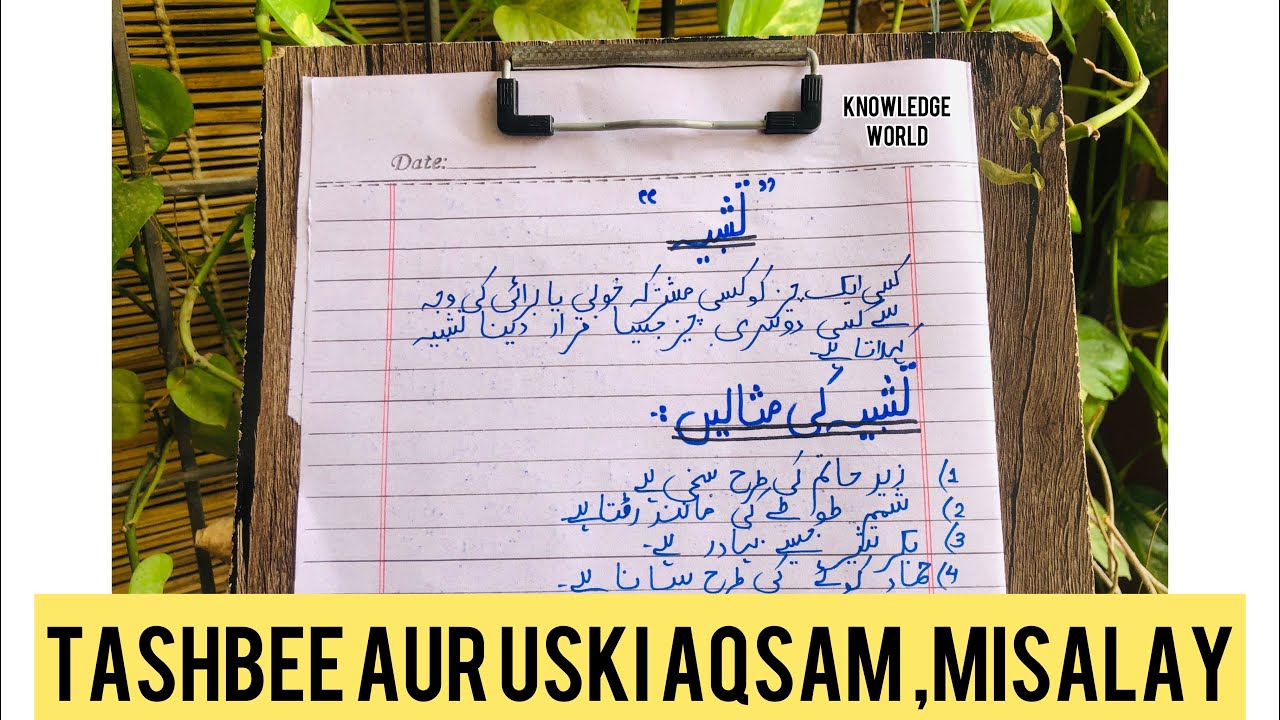 KNOWLEDGE
WORLD
Date:
"تشبیہ"
کسی ایک چیز کو کسی مشترکہ خوبی یا برائی کی وجہ
سے کسی دوسری چیز جیسا قرار دینا تشبیہ
کہلاتا ہے۔
تشبیہ کی مثالیں:
1) زید حاتم کی طرح سخی ہے
2) شمیم طوطے کی مانند رٹتا ہے۔
3) بکر شیر جیسے بہادر ہے۔
4) حماد کوئے کی طرح سیانا ہے۔
TASHBEE AUR USKI AQSAM ,MISALAY